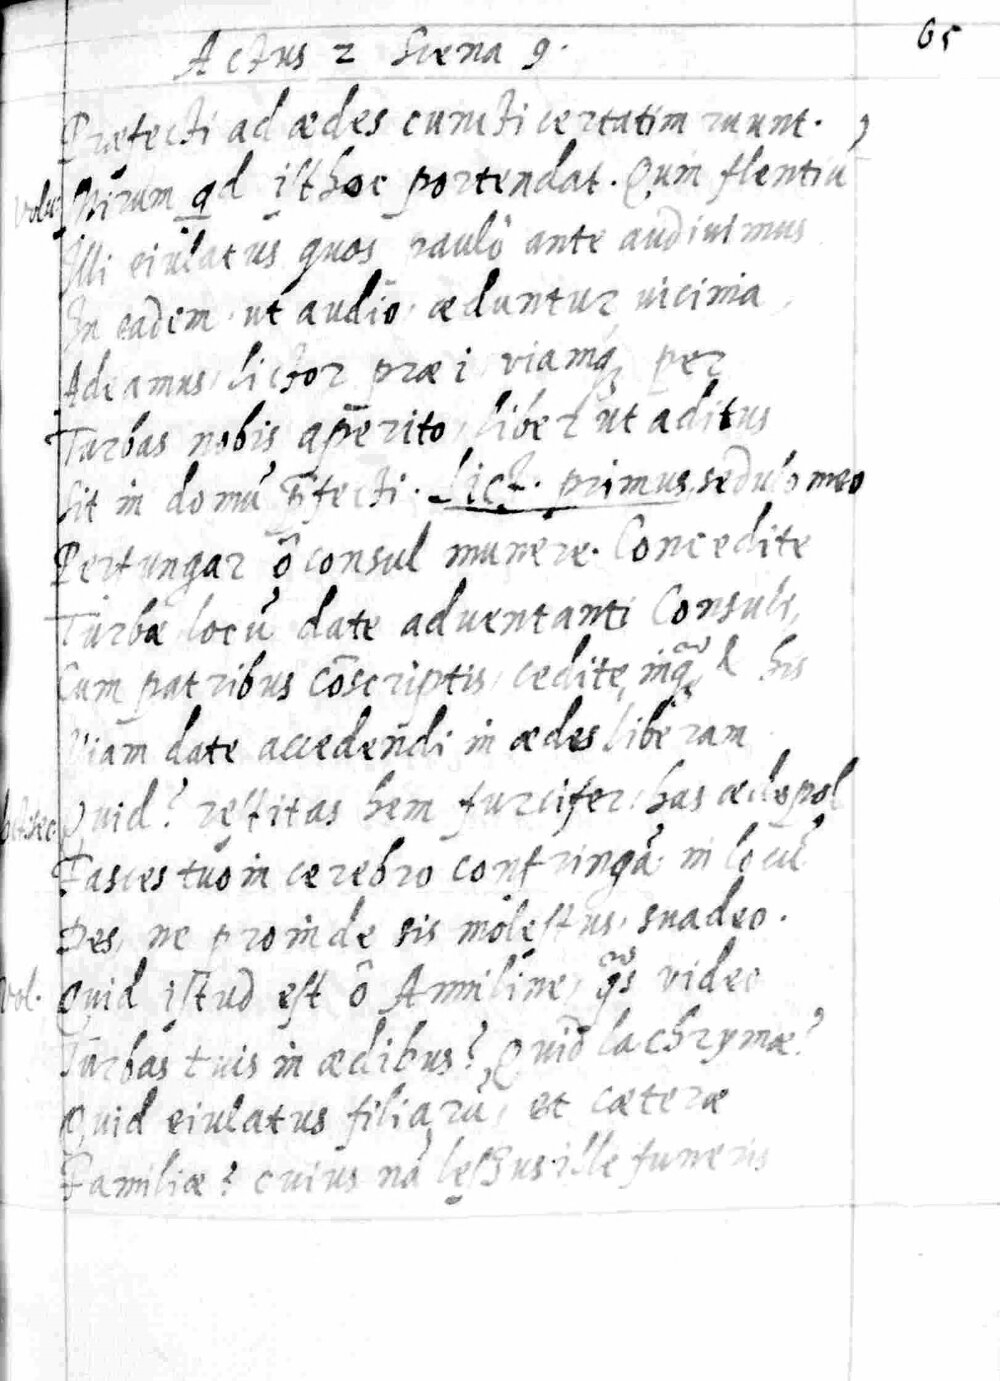 Actus 2 Scena 9. 65
Præfecti ad ædes cuncti certatim ruunt.
Volu: Mirum qd isthoc portendat. Quin flentiũ
Illi eiulatus quos paulô ante audiuimus
In eadem ut audio æduntur uicinia,
Adeamus, lictor præi viamq̃ per
Turbas nobis aperito, liber ut aditus
Sit in domũ p̃fecti. Lict. primus, sedulo meo
Perfungar ô consul munere. Concedite
Turbæ locũ date aduentanti Consuli,
Cum patribus cõscriptis, cedite, inquã, & his
Viam date accedendi in ædes liberam
Quid? restitas hem furcifer: has ædepol
Fasces tuo in cerebro confringã ni locũ
Des, ne proinde sis molestus, suadeo.
Vol. Quid istud est ô Anniline, quãs video
Turbas tuis in ædibus? Quid lachrymæ?
Quid eiulatus filiarũ, et cæteræ
Familiæ? cuius nã lessus ille funeris